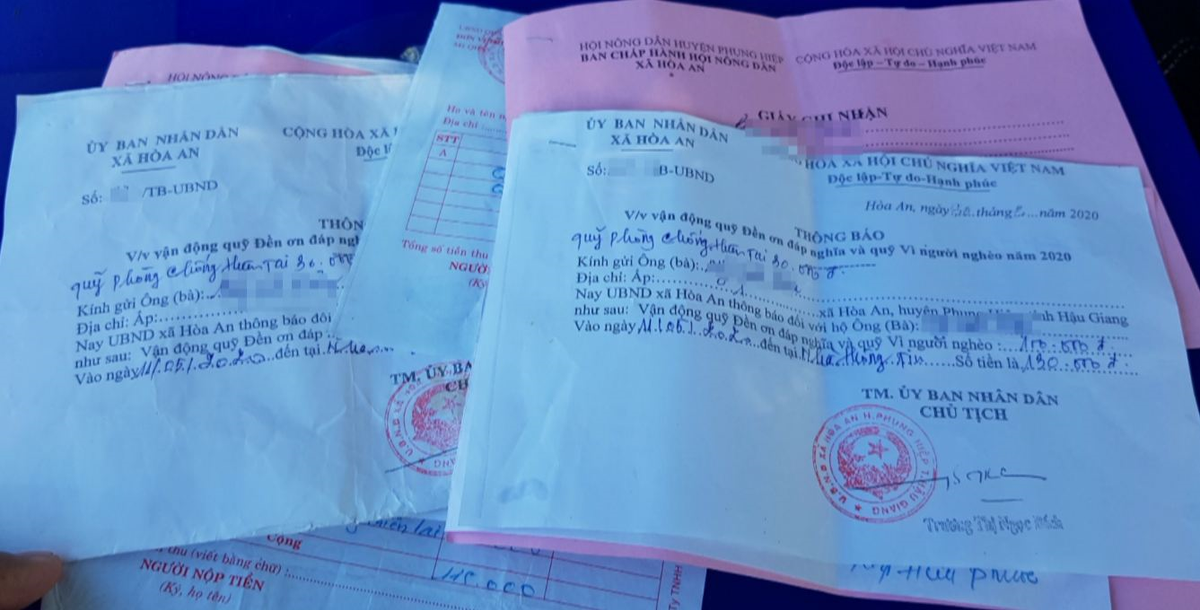 HỘI NÔNG DÂN HUYỆN PHỤNG HIỆP
BAN CHẤP HÀNH HỘI NÔNG DÂN
XÃ HÒA AN
*
CỘNG HÒA XÃ HỘI CHỦ NGHĨA VIỆT NAM
Độc lập - Tự do - Hạnh phúc
GIẤY GHI NHẬN
HỘI NÔNG
ỦY BAN NHÂN DÂN
XÃ HÒA AN
Số: /TB-UBND
CỘNG HÒA XÃ
Độc
THÔN
V/v vận động quỹ Đền ơn đáp ngh
quỹ phòng chống thiên tai 30.000đ
Kính gửi Ông (bà):
Địa chỉ: Ấp:
Nay UBND xã Hòa An thông báo đối
như sau: Vận động quỹ Đền ơn đáp
Vào ngày 11/05/2020 đến tại
TM. ỦY BA
CH
Họ và tên
Địa chỉ
STT
A
Tổng số tiền thu
NGƯỜI
(Ký
ỦY BAN NHÂN DÂN
XÃ HÒA AN
Số: B-UBND
HÒA XÃ HỘI CHỦ NGHĨA VIỆT NAM
Độc lập-Tự do-Hạnh phúc
Hòa An, ngày tháng năm 2020
THÔNG BÁO
V/v vận động quỹ Đền ơn đáp nghĩa và quỹ Vì người nghèo năm 2020
quỹ phòng chống thiên tai 30.000đ
Kính gửi Ông (bà):
Địa chỉ: Ấp: xã Hòa An, huyện Phụng ỉnh Hậu Giang
Nay UBND xã Hòa An thông báo đối với hộ Ông (Bà):
như sau: Vận động quỹ Đền ơn đáp nghĩa và quỹ Vì người nghèo: 100.000đ
Vào ngày 11/05/2020 đến tại Nhà thông tin Số tiền là 130.000đ
TM. ỦY BAN NHÂN DÂN
CHỦ TỊCH
U.B.N.D XÃ HÒA AN H.PHỤNG HIỆP T.HẬU GIANG
Trương Thị Ngọc Bích
Cộng
thu (viết bằng chữ)
NGƯỜI NỘP TIỀN
(Ký, họ tên)
Hữu Phước